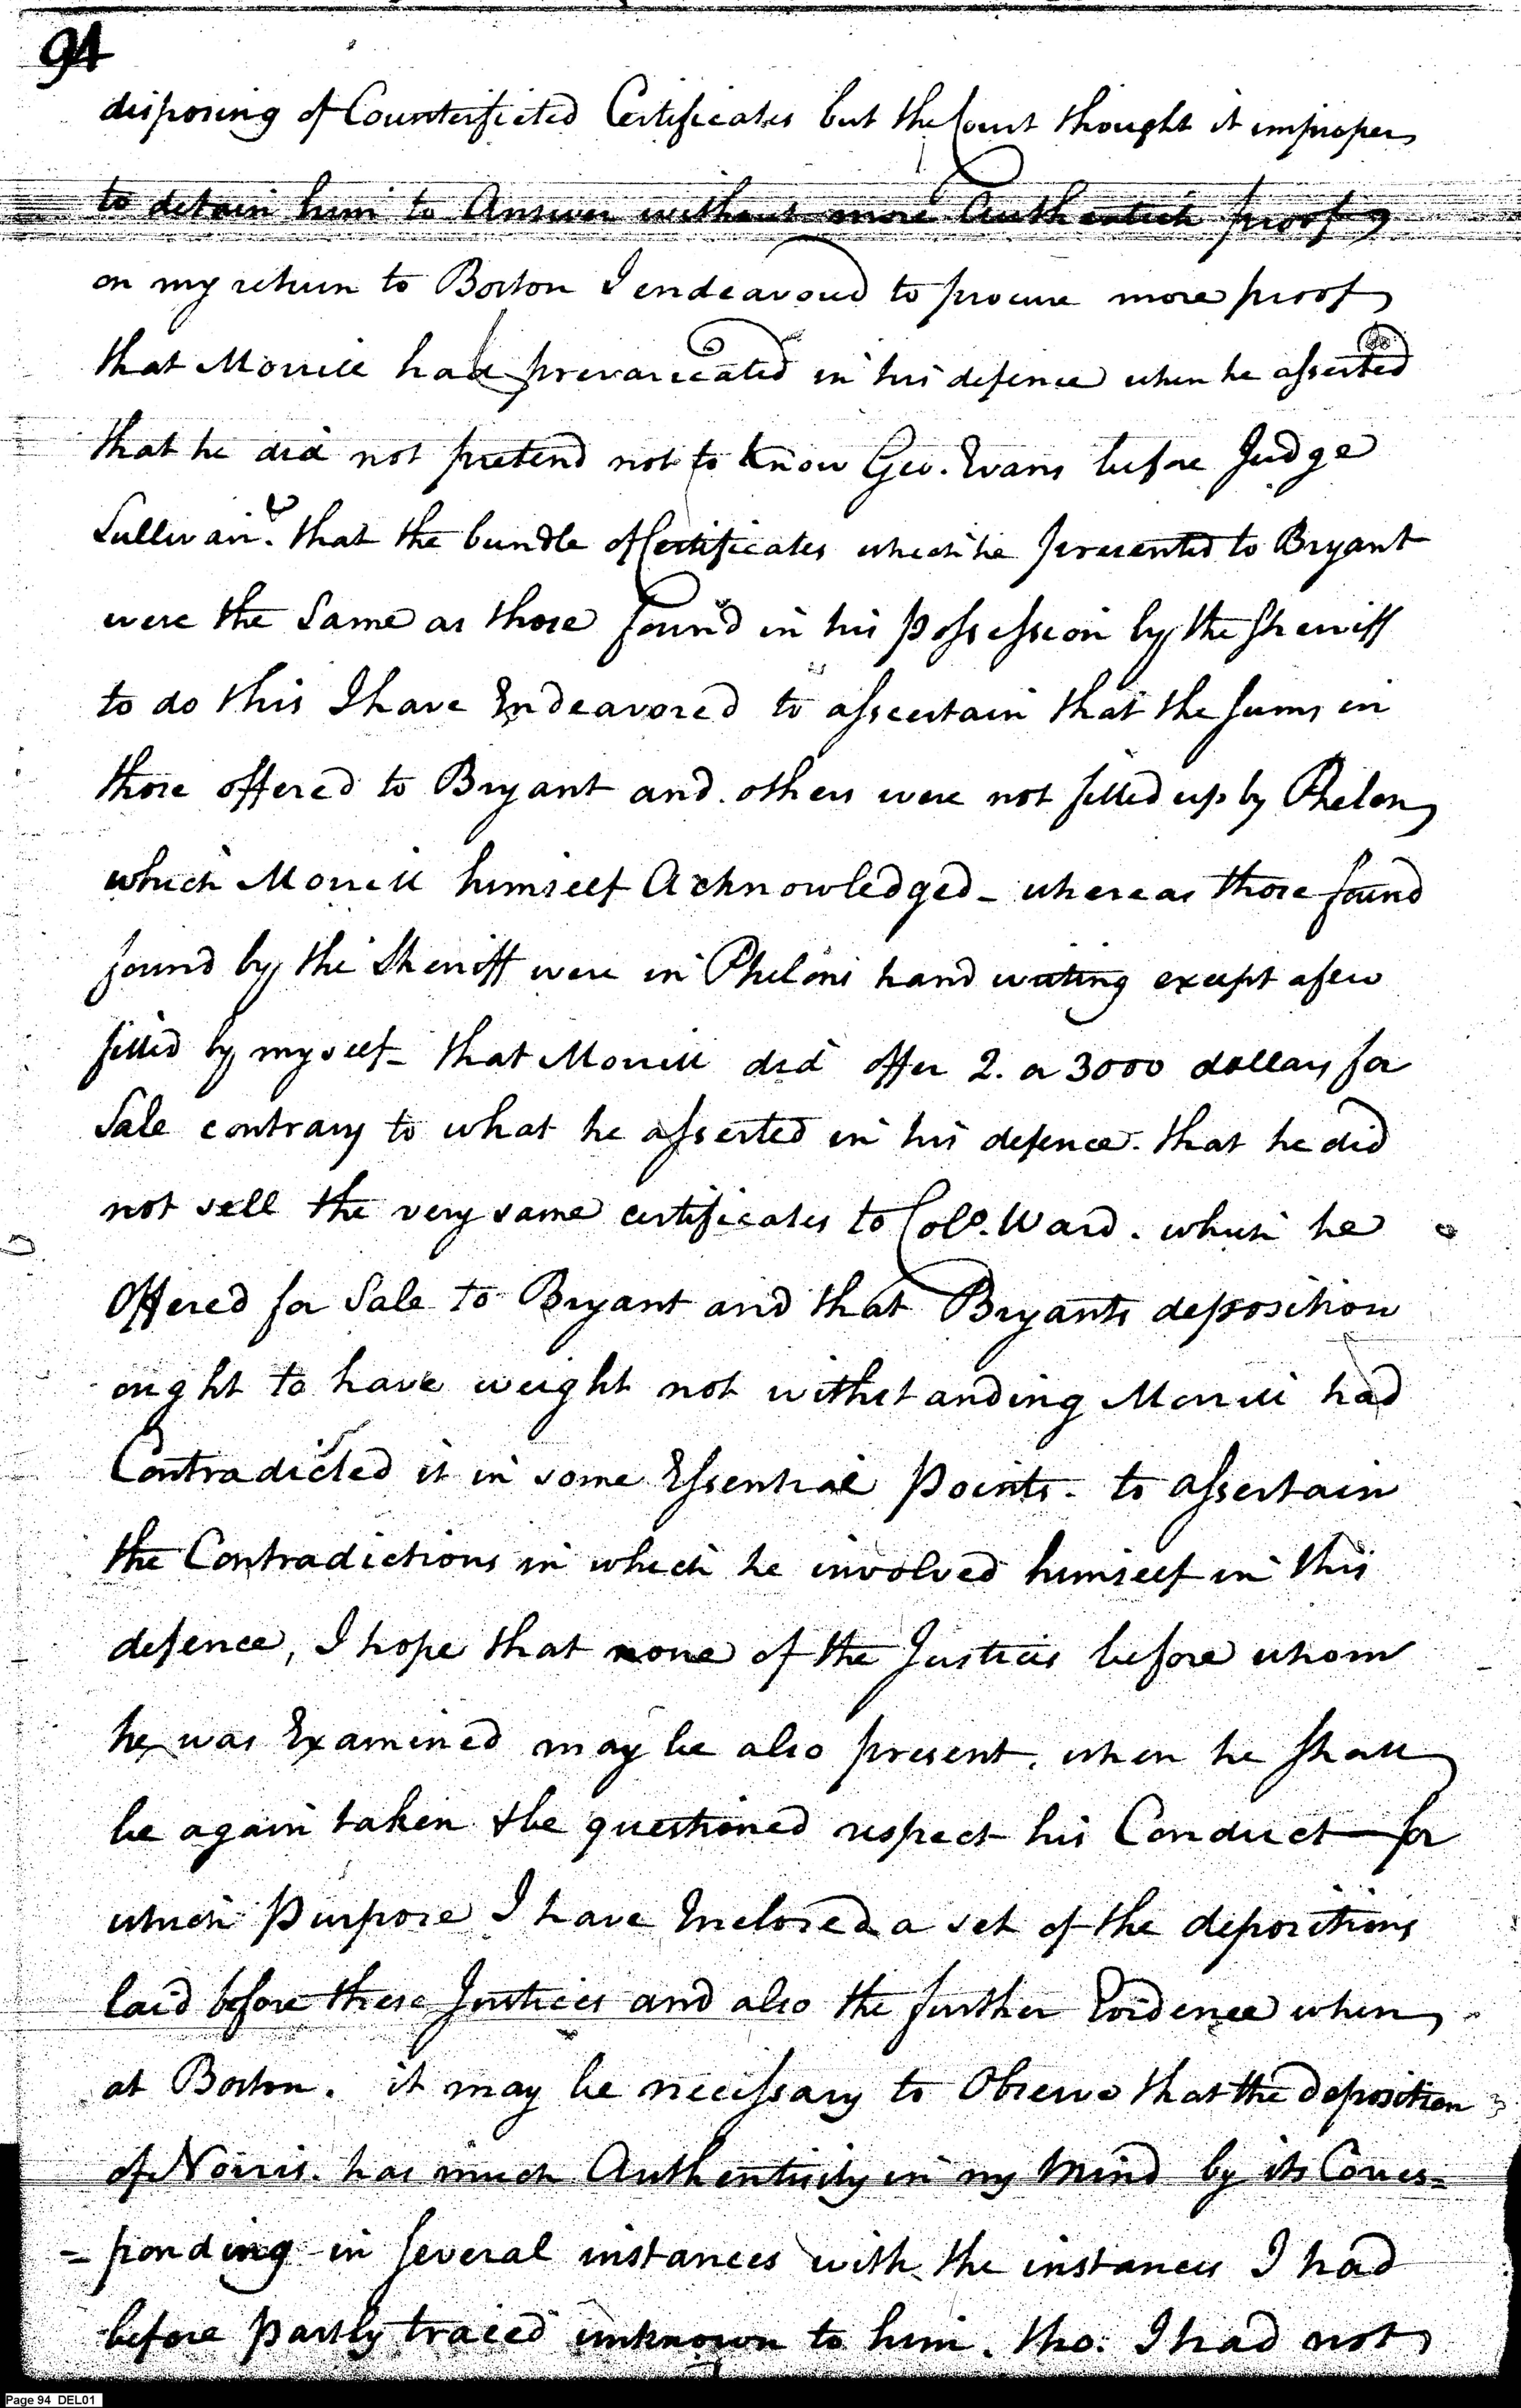 94
disposing of Counterfieted Certificates but the Court thought it improper
to detain him to Answer without more Authentick proof,
on my return to Boston I endeavoured to procure more proof
that Morrill had prevaricated in his defence when he asserted
that he did not pretend not to know Geo. Evans before Judge
Sullivan. that the bundle of Certificates which he presented to Bryant
were the Same as those found in his possession by the Sheriff
to do this I have Endeavored to assertain that the Sums in
those offered to Bryant and others were not filled up by Phelon,
which Morrill himself Acknowledged - whereas those found
found by the Sheriff were in Phelons hand writing except a few
filled by myself - that Morrill did offer 2. or 3000 dollars for
Sale contrary to what he asserted in his defence. that he did
not sell the very same certificates to Colo. Ward. which he
Offered for Sale to Bryant and that Bryants deposition
ought to have weight not withstanding Morrill had
Contradicted it in some Essential Points - to assertain
the Contradictions in which he involved himself in this
defence, I hope that none of the Justices before whom
he was Examined may be also present, when he shall
be again taken & be questioned respect his Conduct - for
which Purpose I have Inclosed a set of the depositions
laid before these Justices and also the further Evidence when
at Boston. it may be necessary to Observe that the deposition
of Norris. has much Authenticity in my Mind by its Corres=
=ponding in several instances with the instances I had
before Partly traced unknown to him. tho. I had not
Page 94 DEL01